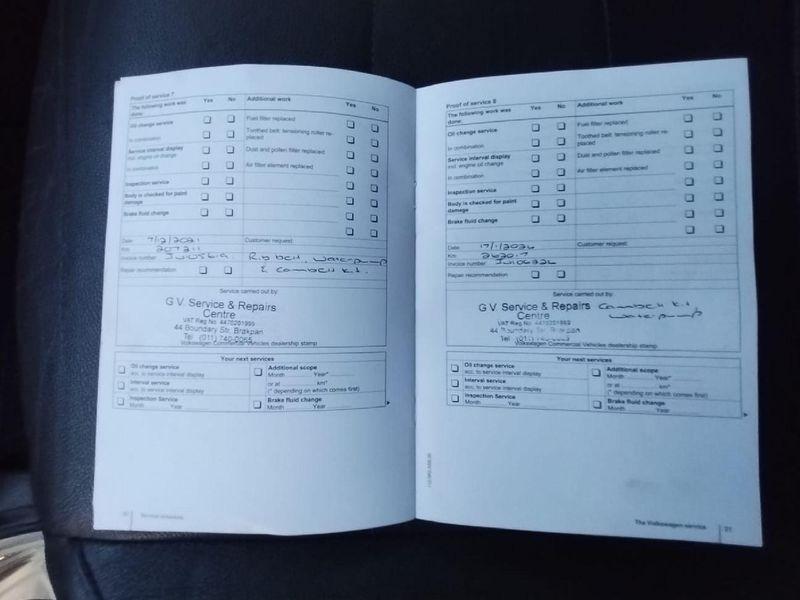 Proof of service 7
The following work was done: Yes No Additional work Yes No
Oil change service Fuel filter replaced
In combination Toothed belt: tensioning roller re-
placed
Service interval display
incl. engine oil change Dust and pollen filter replaced
In combination Air filter element replaced
Inspection service
Body is checked for paint
damage
Brake fluid change
Date 7/12/2021 Customer request
Km
Invoice number Rib belt, waterpump
Repair recommendation & Cambelt kit.
Service carried out by:
G V Service & Repairs
Centre
VAT Reg No 4470201999
44 Boundary Str, Brakpan
Tel (011) 740-0065
Volkswagen Commercial Vehicles dealership stamp
Your next services
Oil change service
acc. to service interval display
Interval service
acc. to service interval display
Inspection Service
Month Year
Additional scope
Month Year*
or at km*
(* depending on which comes first)
Brake fluid change
Month Year
Service schedule
Proof of service 8
The following work was done: Yes No Additional work Yes No
Oil change service Fuel filter replaced
In combination Toothed belt: tensioning roller re-
placed
Service interval display
incl. engine oil change Dust and pollen filter replaced
In combination Air filter element replaced
Inspection service
Body is checked for paint
damage
Brake fluid change
Date Customer request
Km
Invoice number
Repair recommendation
Service carried out by:
G V Service & Repairs Cambelt kit
Centre waterpump
VAT Reg No
44 Boundary Str, Brakpan
Tel (011)
Volkswagen Commercial Vehicles dealership stamp
Your next services
Oil change service
acc. to service interval display
Interval service
acc. to service interval display
Inspection Service
Month Year
Additional scope
Month Year*
or at km*
(* depending on which comes first)
Brake fluid change
Month Year
The Volkswagen service 21